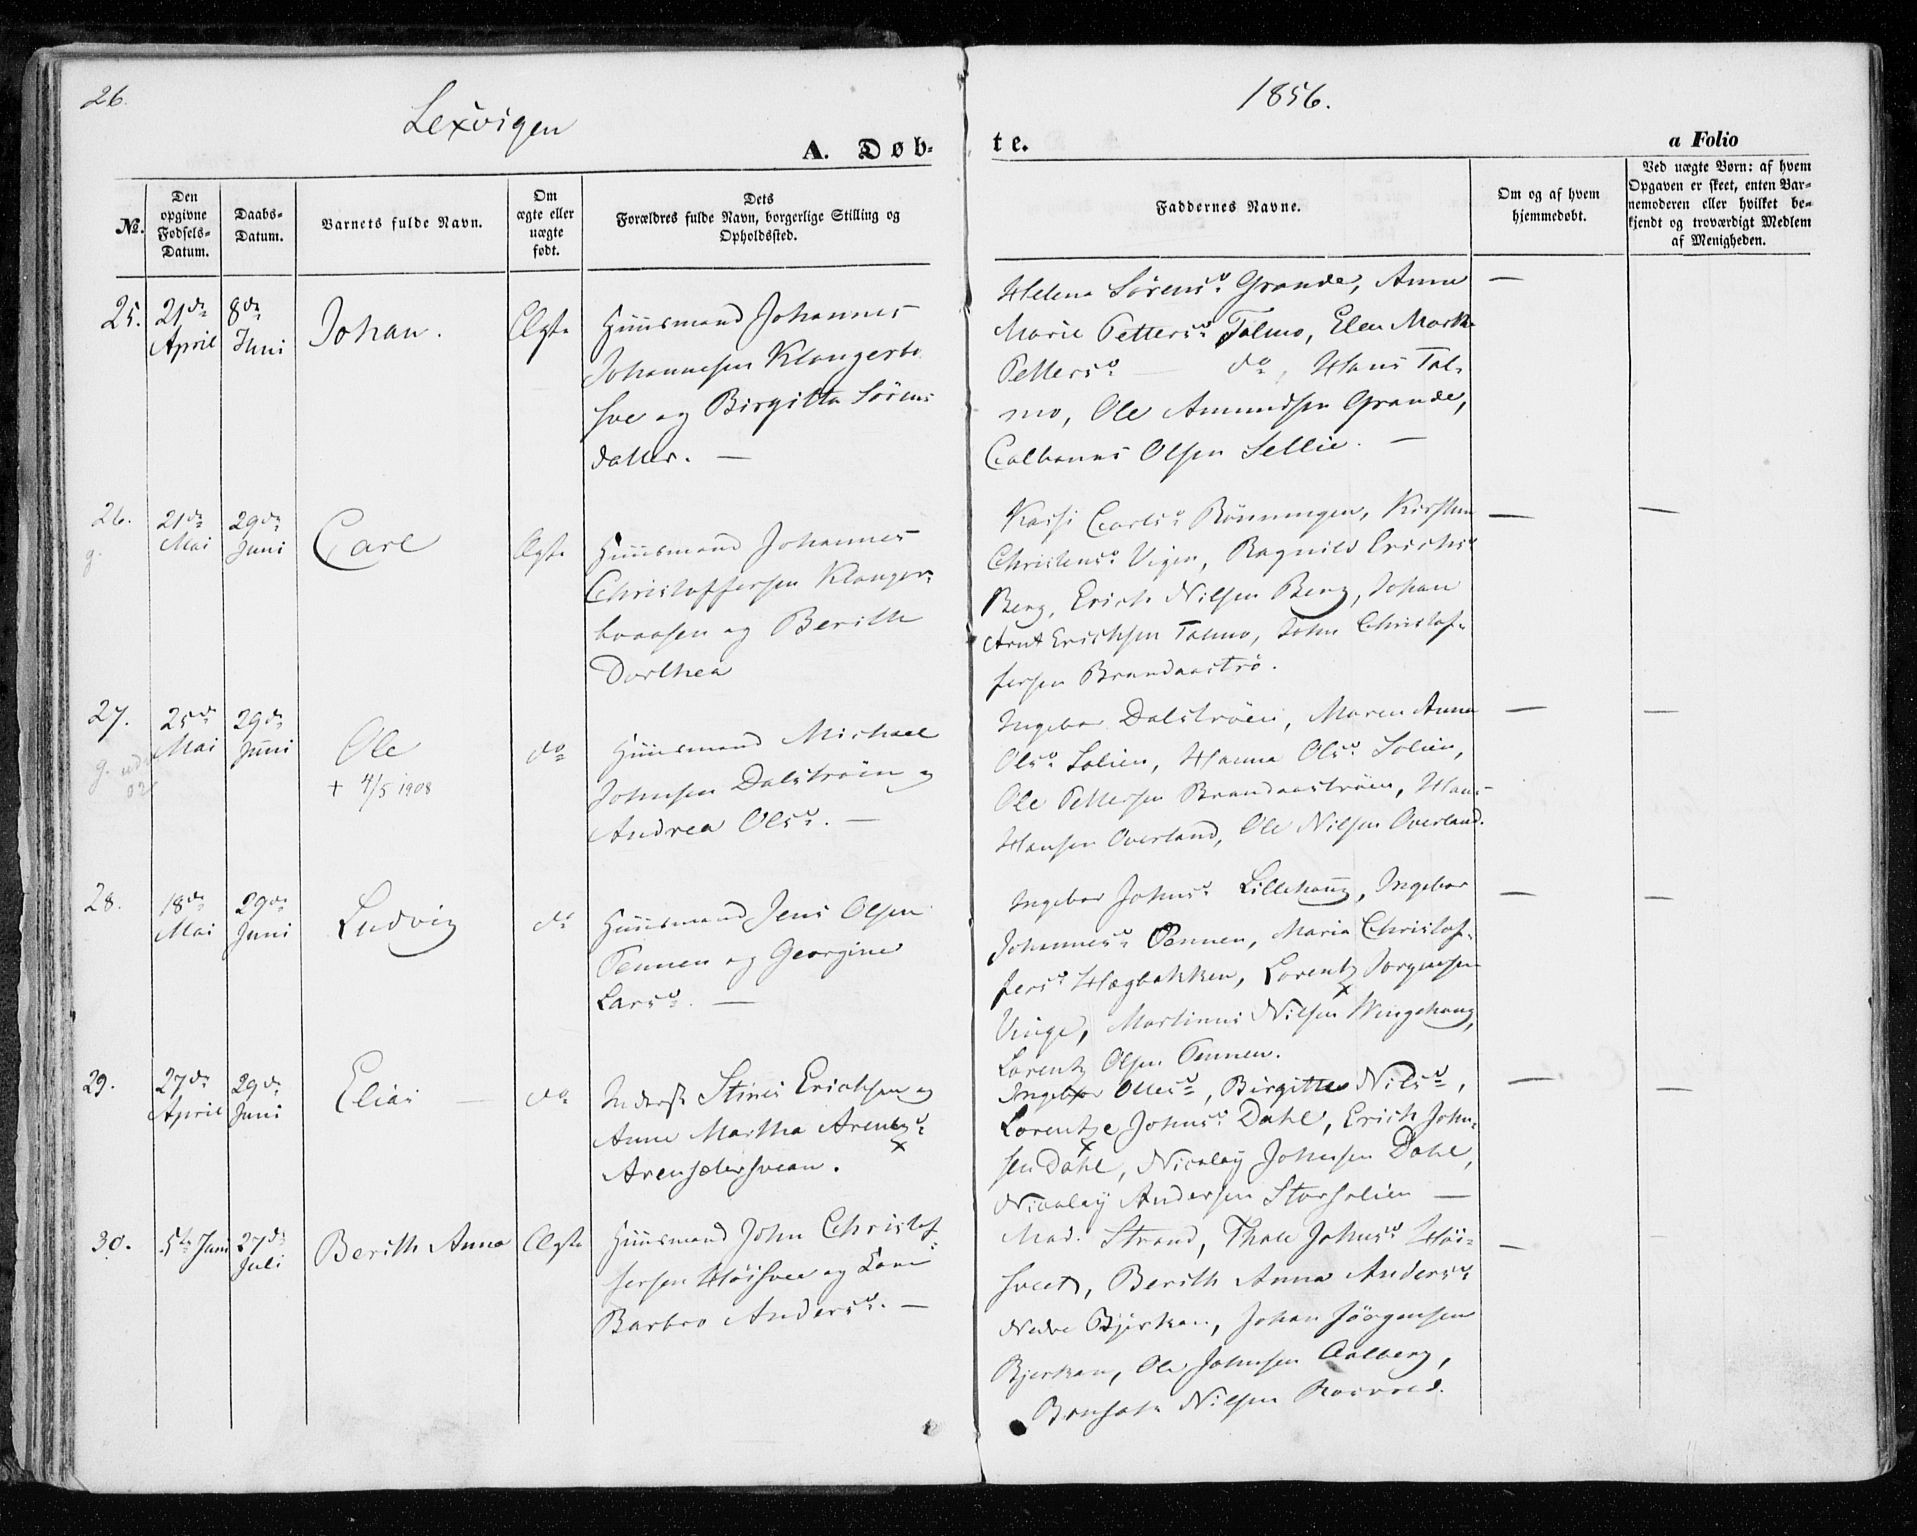 26.
Lexvigen
1856.
A. Døb-
te.
a Folio
No.
Den opgivne Fødsels-Datum.
Daabs-Datum.
Varnets fulde Navn.
Om ægte eller uægte født.
Dets Forældres fulde Navn, borgerlige Stilling og Opholdssted.
Faddernes Navne.
Om og af hvem hjemmedøbt.
Ved uægte Børn: af hvem Opgaven er skeet, enten Barnemoderen eller hvilket bekjendt og troværdigt Medlem af Menigheden.
25. 21de April 8de Juni Johan. Ægte
Huusmand Johannes
Johannesen Klangerbo
sve og Birgitta Sørens
datter. —
Helena Sørensd. Grande, Anne —
Marie Pettersd. Talmo, Elen Marth
Pettersd. — do, Hans Tal-
mo, Ole Amundsen Grande,
Calhanus Olsen Sellie. —
26. 21de Mai 29de Juni Carl Ægte
g.
Huusmand Johannes
Christoffersen Klanger-
boaasen og Berith
Dorthea
Kassi Carlsd. Rönningen, Kirsten — —
Christensd. Vigen, Ragnild Erichsd.
Berg, Erich Nilsen Berg, Johan
Arnt Erichsen Talmo, John Christof-
fersen Brandaaströ.
27. 25de Mai 29de Juni Ole do
g.
+ 4/5 1908
Huusmand Michael
Johnsen Dalströen og
Andrea Olsd. —
Ingebor Dalströen, Maren Anna — —
Olsd. Solien, Hanna Olsd. Solien,
Ole Pettersen Brandaaströen, Hans
Hansen Overland, Ole Nilsen Overland.
28. 18de Mai 29de Juni Ludvig do
Huusmand Jens Olsen
Tennen og Georgine
Larsd. —
Ingebor Johnsd. Lillehaug, Ingebor — —
Johannesd. Tennen, Maria Christof-
fersd. Hægbakken, Lorentz Jørgensen
Vinge, Martinus Nilsen Wingehaug,
Lorentz Olsen Tennen.
29. 27de April 29de Juni Elias — do
Inderst Stines Erichsen og
Anne Martha Arentzd.
Arensætersvean.
Ingebor Ollesd., Birgitte Nilsd., — —
Lorentze Johnsd. Dahl, Erich John-
sen Dahl, Nicolay Johnsen Dahl,
Nicolay Andersen Storsolien —
30. 5te Juni 27de Juli Berith Anna Ægte
Huusmand John Christof-
fersen Höisvee og
Barbro Andersd. —
Mad. Strand, Thale Johnsd. Höi- —
sveet, Berith Anna Andersd.
Nedre Bjerkan, Johan Jörgensen
Bjerkan, Ole Johnsen Aalberg,
Nilsen